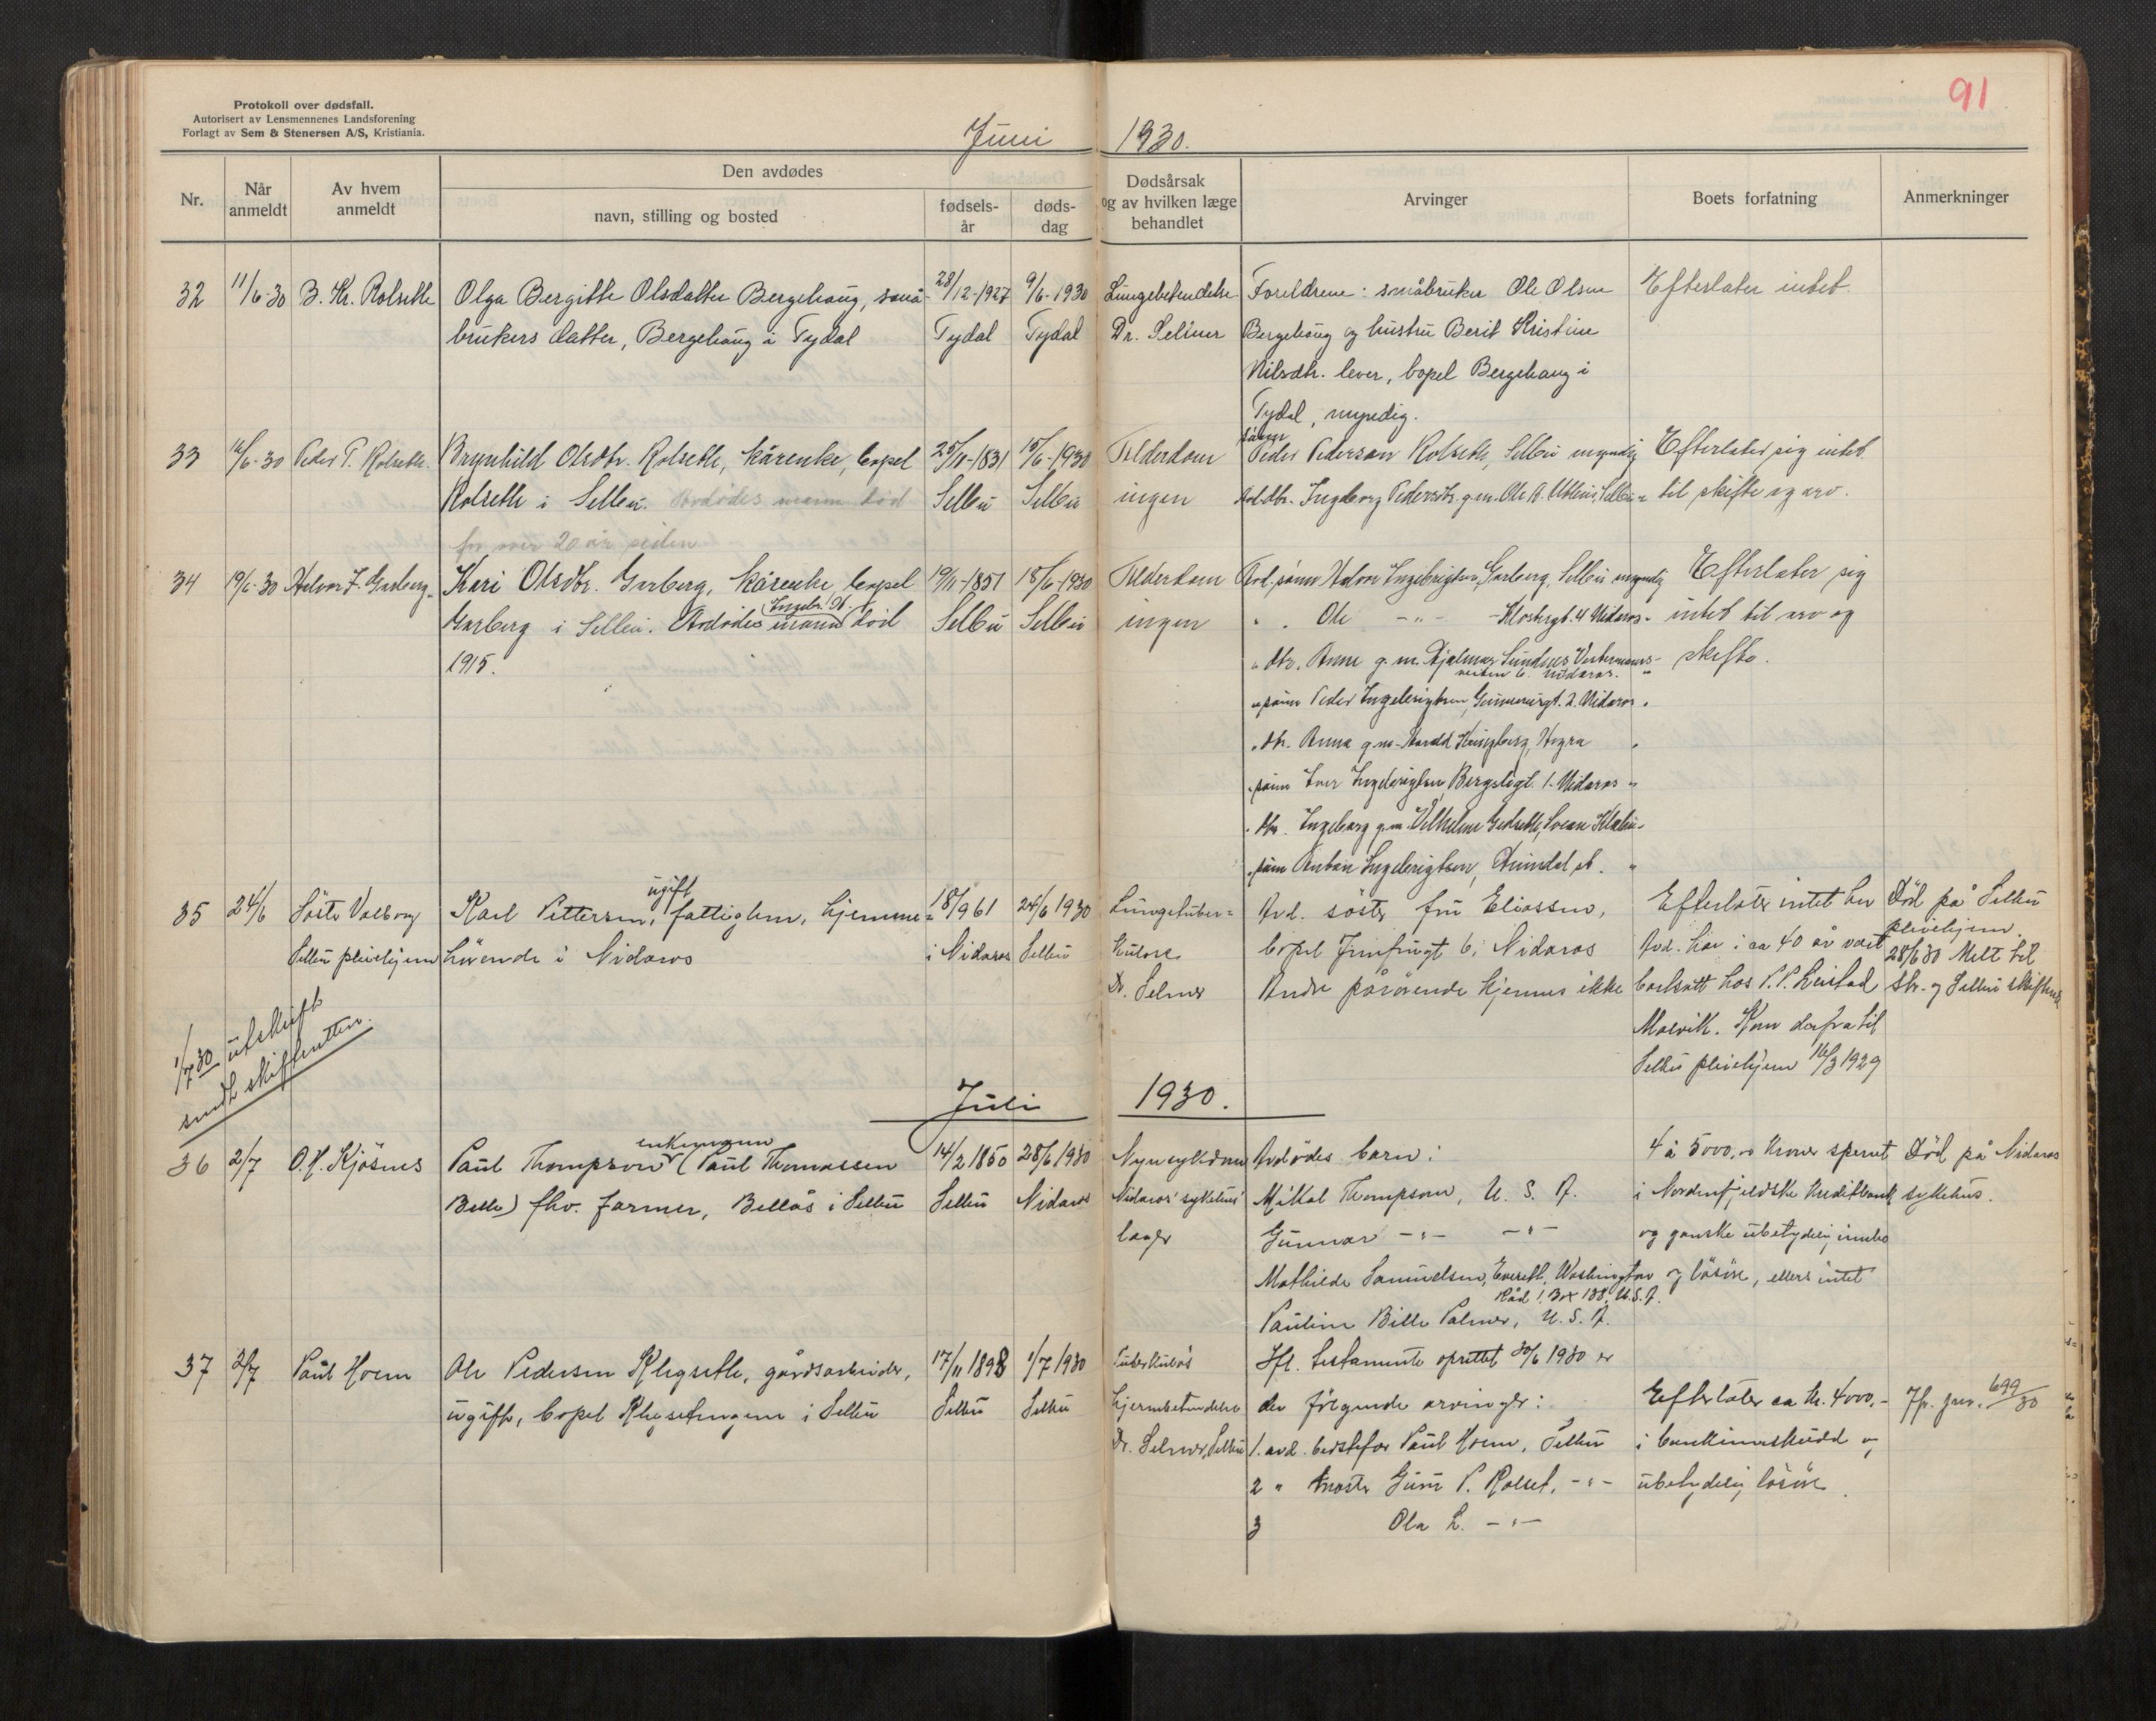 91
Protokoll over dødsfall.
Autorisert av Lensmennenes Landsforening
Forlagt av Sem & Stenersen A/S, Kristiania.
Juni 1930.
Nr.
Når anmeldt
Av hvem anmeldt
Den avdødes
navn, stilling og bosted
fødsels-år
døds-dag
Dødsårsak og av hvilken læge behandlet
Arvinger
Boets forfatning
Anmerkninger
32 11/6-30 B. Kr. Rolseth Olga Bergitte Olsdatter Bergehaug, små- 28/12-1927 9/6-1930 Lungebetendelse Foreldrene: småbruker Ole Olsen Efterlater intet.
brukers datter, Bergehaug i Tydal Tydal Tydal Dr. Selmer Bergehaug og hustru Berit Kristine
Nilsdtr. lever, bopel Bergehaug i
Tydal, myndig.
sønn
33 16/6-30 Peder P. Rolseth Brynhild Olsdtr. Rolseth, kårenke, bopel 25/11-1831 15/6-1930 Alderdom Peder Pederson Rolseth, Selbu myndig Efterlater sig intet
Rolseth i Selbu. Avdødes mann død Selbu Selbu ingen Avd. dtr. Ingeborg Pedersdtr. g.m. Ole A. Selbu til skifte og arv.
for over 20 år siden
34 19/6-30 Halvor I. Garberg Kari Olsdtr. Garberg, kårenke, bopel 19/11-1851 18/6-1930 Alderdom Avd. sønn Halvor Ingebrigtsen Garberg, Selbu myndig Efterlater sig
Garberg i Selbu. Avdødes mann Ingebr. H. død Selbu Selbu ingen " . Ole -"- Klostergt. 4 Nidaros - intet til arv og
1915. " dtr. Anne g.m. Hjalmar Sundnes skifte.
veiten 6. Nidaros. "
" sønn Peder Ingebrigtsen, Gunnerusgt. 2. Nidaros "
" dtr. Anna g.m. Harald Hegra "
" sønn Iver Ingebrigtsen, Bergsligt. 1. Nidaros "
" dtr. Ingeborg g.m. Vilhelm Klæbu -
" sønn Anton Ingebrigtsen, st. "
35 24/6 Søster Valborg Karl Pettersen, ugift, fattiglem, hjemme- 18/9 61 24/6 1930 Lungetuber- Avd. søster fru Eliassen, Efterlater intet her Død på Selbu
Selbu pleiehjem hørende i Nidaros i Nidaros Selbu kulose bopel Jomfrugt 6, Nidaros Avd. har i ca 40 år vært pleiehjem.
Dr. Selmer Andre pårørende kjennes ikke bortsatt hos P. P. Leistad 28/6 30 Melt til
Malvik. Kom derfra til Str. og Selbu skifterett
Selbu pleiehjem 16/3 1929
1/7 30 utskrift
sendt skifteretten.
Juli 1930.
36 2/7 O. H. Kjøsnes Paul Thompson enkemann (Paul Thomassen 14/2 1850 28/6 1930 Nyresykdom Avdødes barn: 4 à 5000,00 kroner sperret Død på Nidaros
Belle) fhv. farmer, Bellås i Selbu Selbu Nidaros Nidaros sykehus' Mikal Thompson, U. S. A. i Nordenfjeldske Kreditbank sykehus.
læger Gunnar -"- -"- og ganske ubetydelig innbo
Mathilde Samuelsen, Everett, Washington og løsøre, ellers intet
Råd 1, Box 138, U.S.A.
Pauline Bille Palmer, U. S. A.
37 2/7 Paul Hoem Ole Pedersen Klegseth, gårdsarbeider, 17/11 1898 1/7 1930 Tuberkuløs Ifl. testamente oprettet 30/6 1930 er
ugift, bopel i Selbu Selbu Selbu hjernebetendelse der følgende arvinger: Efterlater ca kr. 4000,- Jfr. jrnr. 699/30
Dr. Selmer, Selbu 1. avd. bestefar Paul Hoem, Selbu i bankinnskudd og
2 " moster Guru P. Rolset, -"- ubetydelig løsøre.
3 Ola L. -"-